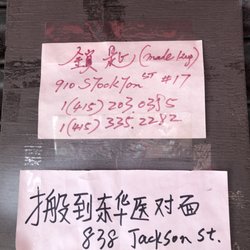 鎖匙 (made key)
910 Stockton ST #17
1(415) 203.0385
1(415) 335.2282
搬到东华医对面
838 Jackson St.